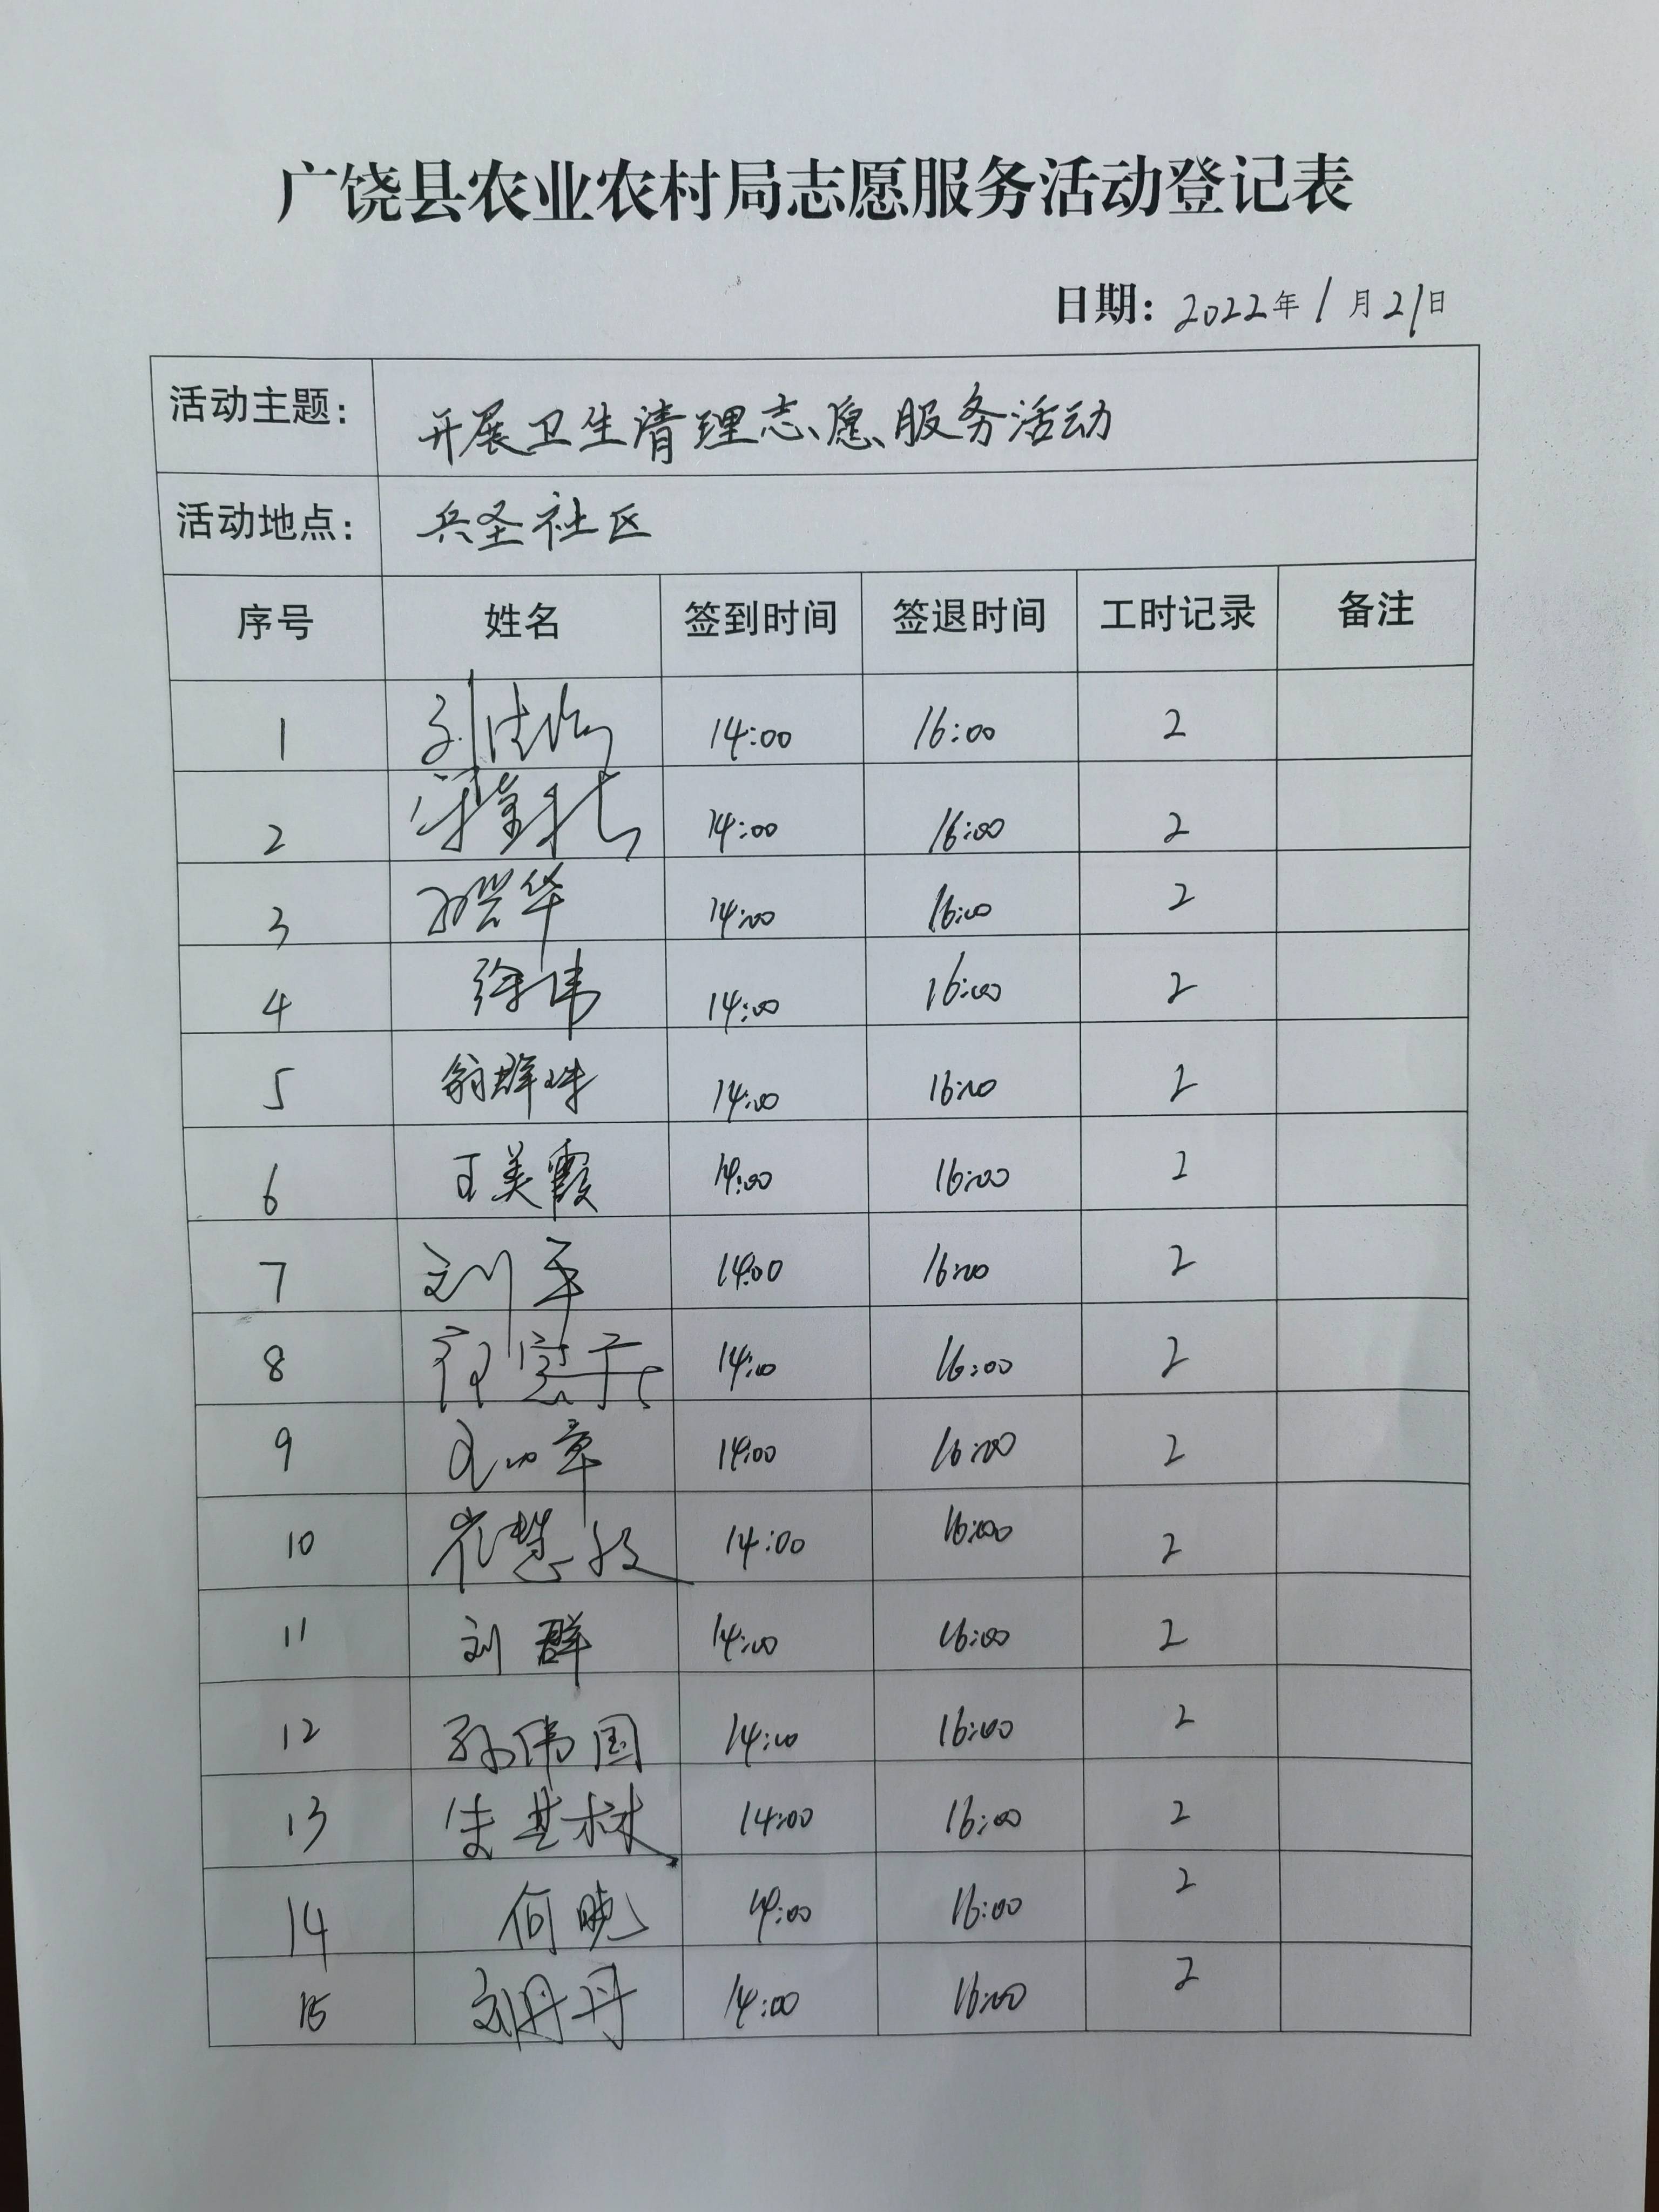 广饶县农业农村局志愿服务活动登记表
日期: 2022年1月21日
活动主题: 开展卫生清理志愿服务活动
活动地点: 兵圣社区
序号 姓名 签到时间 签退时间 工时记录 备注
1 14:00 16:00 2
2 14:00 16:00 2
3 14:00 16:00 2
4 徐伟 14:00 16:00 2
5 翁群珠 14:00 16:00 2
6 王美霞 14:00 16:00 2
7 刘军 14:00 16:00 2
8 14:00 16:00 2
9 14:00 16:00 2
10 14:00 16:00 2
11 刘群 14:00 16:00 2
12 孙伟国 14:00 16:00 2
13 14:00 16:00 2
14 何晓 14:00 16:00 2
15 刘丹丹 14:00 16:00 2